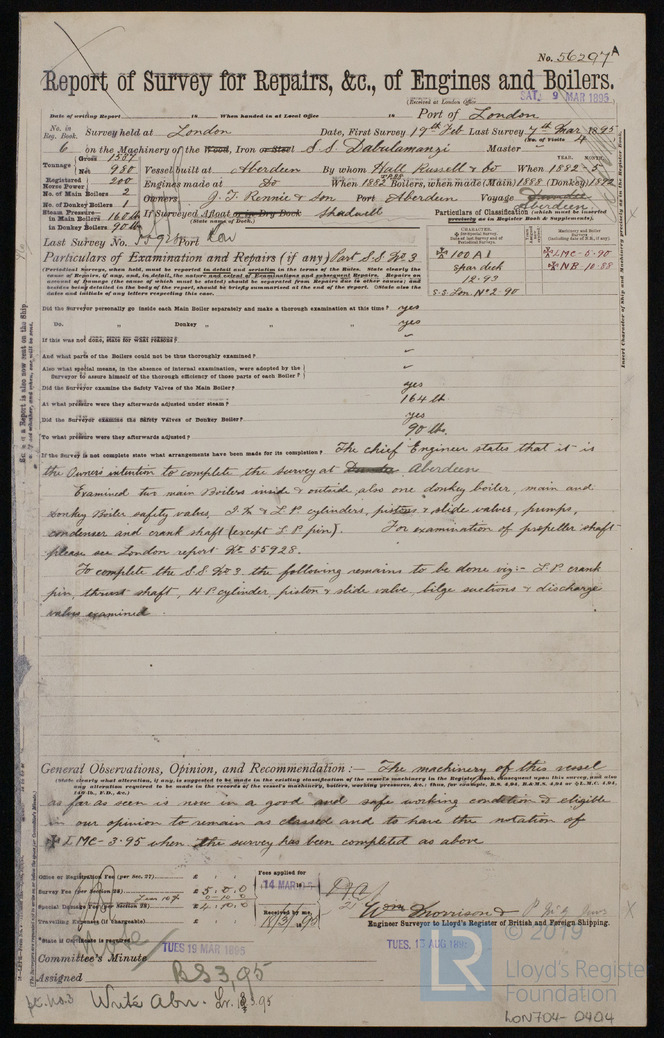 No. 56297A
Report of Survey for Repairs, &c., of Engines and Boilers.
(Received at London Office SAT. 9 MAR 1895
Date of writing Report 18 When handed in at Local Office 18 Port of London
No. in Reg. Book. Survey held at London Date, First Survey 19th Feb Last Survey 7th Mar 1895
(No. of Visits 4
6 on the Machinery of the Wood, Iron or Steel S S Dabulamanzi Master
Tonnage Gross 1507
Net 980
Vessel built at Aberdeen By whom Hall Russell & Co When 1882-5
YEAR. MONTH.
Registered Horse Power 200
Engines made at Do When 1882 Boilers, when made (Main) 1888 (Donkey) 1882
No. of Main Boilers 2
No. of Donkey Boilers 1
Owners J. T. Rennie & Son Port Aberdeen Voyage Aberdeen
Steam Pressure in Main Boilers 160 lb
in Donkey Boilers 90 lb
If Surveyed Afloat or in Dry Dock Shadwell
(State name of Dock.)
Particulars of Classification (which must be inserted precisely as in Register Book & Supplements).
Last Survey No. Port Lon
Particulars of Examination and Repairs (if any) Part S.S No 3
✠ 100 A1
Spar deck
12.93
S.S. Lon. No 2-90
✠ LMC-5-90
✠ NB 10.88
(Periodical Surveys, when held, must be reported in detail and seriatim in the terms of the Rules. State clearly the
cause of Repairs, if any, and, in detail, the nature and extent of Examinations and subsequent Repairs. Repairs on
account of Damage (the cause of which must be stated) should be separated from Repairs due to other causes; and
besides being detailed in the body of the report, should be briefly summarised at the end of the report. State also the
dates and initials of any letters respecting this case.
Did the Surveyor personally go inside each Main Boiler separately and make a thorough examination at this time? yes
Do. " Donkey " " " yes
If this was not done, state for what reasons?
And what parts of the Boilers could not be thoroughly examined?
Also what special means, in the absence of internal examination, were adopted by the
Surveyor to assure himself of the thorough efficiency of those parts of each Boiler?
Did the Surveyor examine the Safety Valves of the Main Boiler? yes
At what pressure were they afterwards adjusted under steam? 164 lb.
Did the Surveyor examine the Safety Valves of Donkey Boiler? yes
To what pressure were they afterwards adjusted? 90 lb.
If the Survey is not complete state what arrangements have been made for its completion? The chief Engineer states that it is
the Owners intention to complete the survey at Aberdeen
Examined two main Boilers inside & outside, also one donkey boiler, main and
donkey Boiler safety valves, I.P. & L.P. cylinders, pistons & slide valves, pumps,
condenser and crank shaft (except L P pin). For examination of propeller shaft
please see London report No 55928.
To complete the S.S. No 3 the following remains to be done viz:- L.P. crank
pin, thrust shaft, H.P. cylinder, piston & slide valve, bilge suctions & discharge
valves examined
General Observations, Opinion, and Recommendation:— The machinery of this vessel
(State clearly what alteration, if any, is suggested to be made in the existing classification of the vessel's machinery in the Register Book, consequent upon this survey, and also
any alteration required to be made in the records of the vessel's machinery, boilers, working pressures, &c.; thus, for example, B.S. 4,94, B.&M.S. 4,94 or ✠L.M.C. 4,94,
140 lb., F.D., &c.)
as far as seen is now in a good and safe working condition & eligible
in our opinion to remain as classed and to have the notation of
✠ LMC-3.95 when the survey has been completed as above
Office or Registration Fee (per Sec. 27) £ : :
Survey Fee (per Section 28) £ 5 : 0 : 0
Special Damage Fee (per Section 28) £ 4 : 10 : 0
Travelling Expenses (if chargeable) £ : :
Fees applied for
14 MAR 18
Received by me,
18/3/1895
Wm Morrison &
Engineer Surveyor to Lloyd's Register of British and Foreign Shipping.
*State if Certificate is required
Committee's Minute TUES 19 MAR 1895
TUES. 13 AUG 1895
Assigned BS 3,95
Write Abn.
© 2019
LR
Lloyd's Register
Foundation
LON704-0404